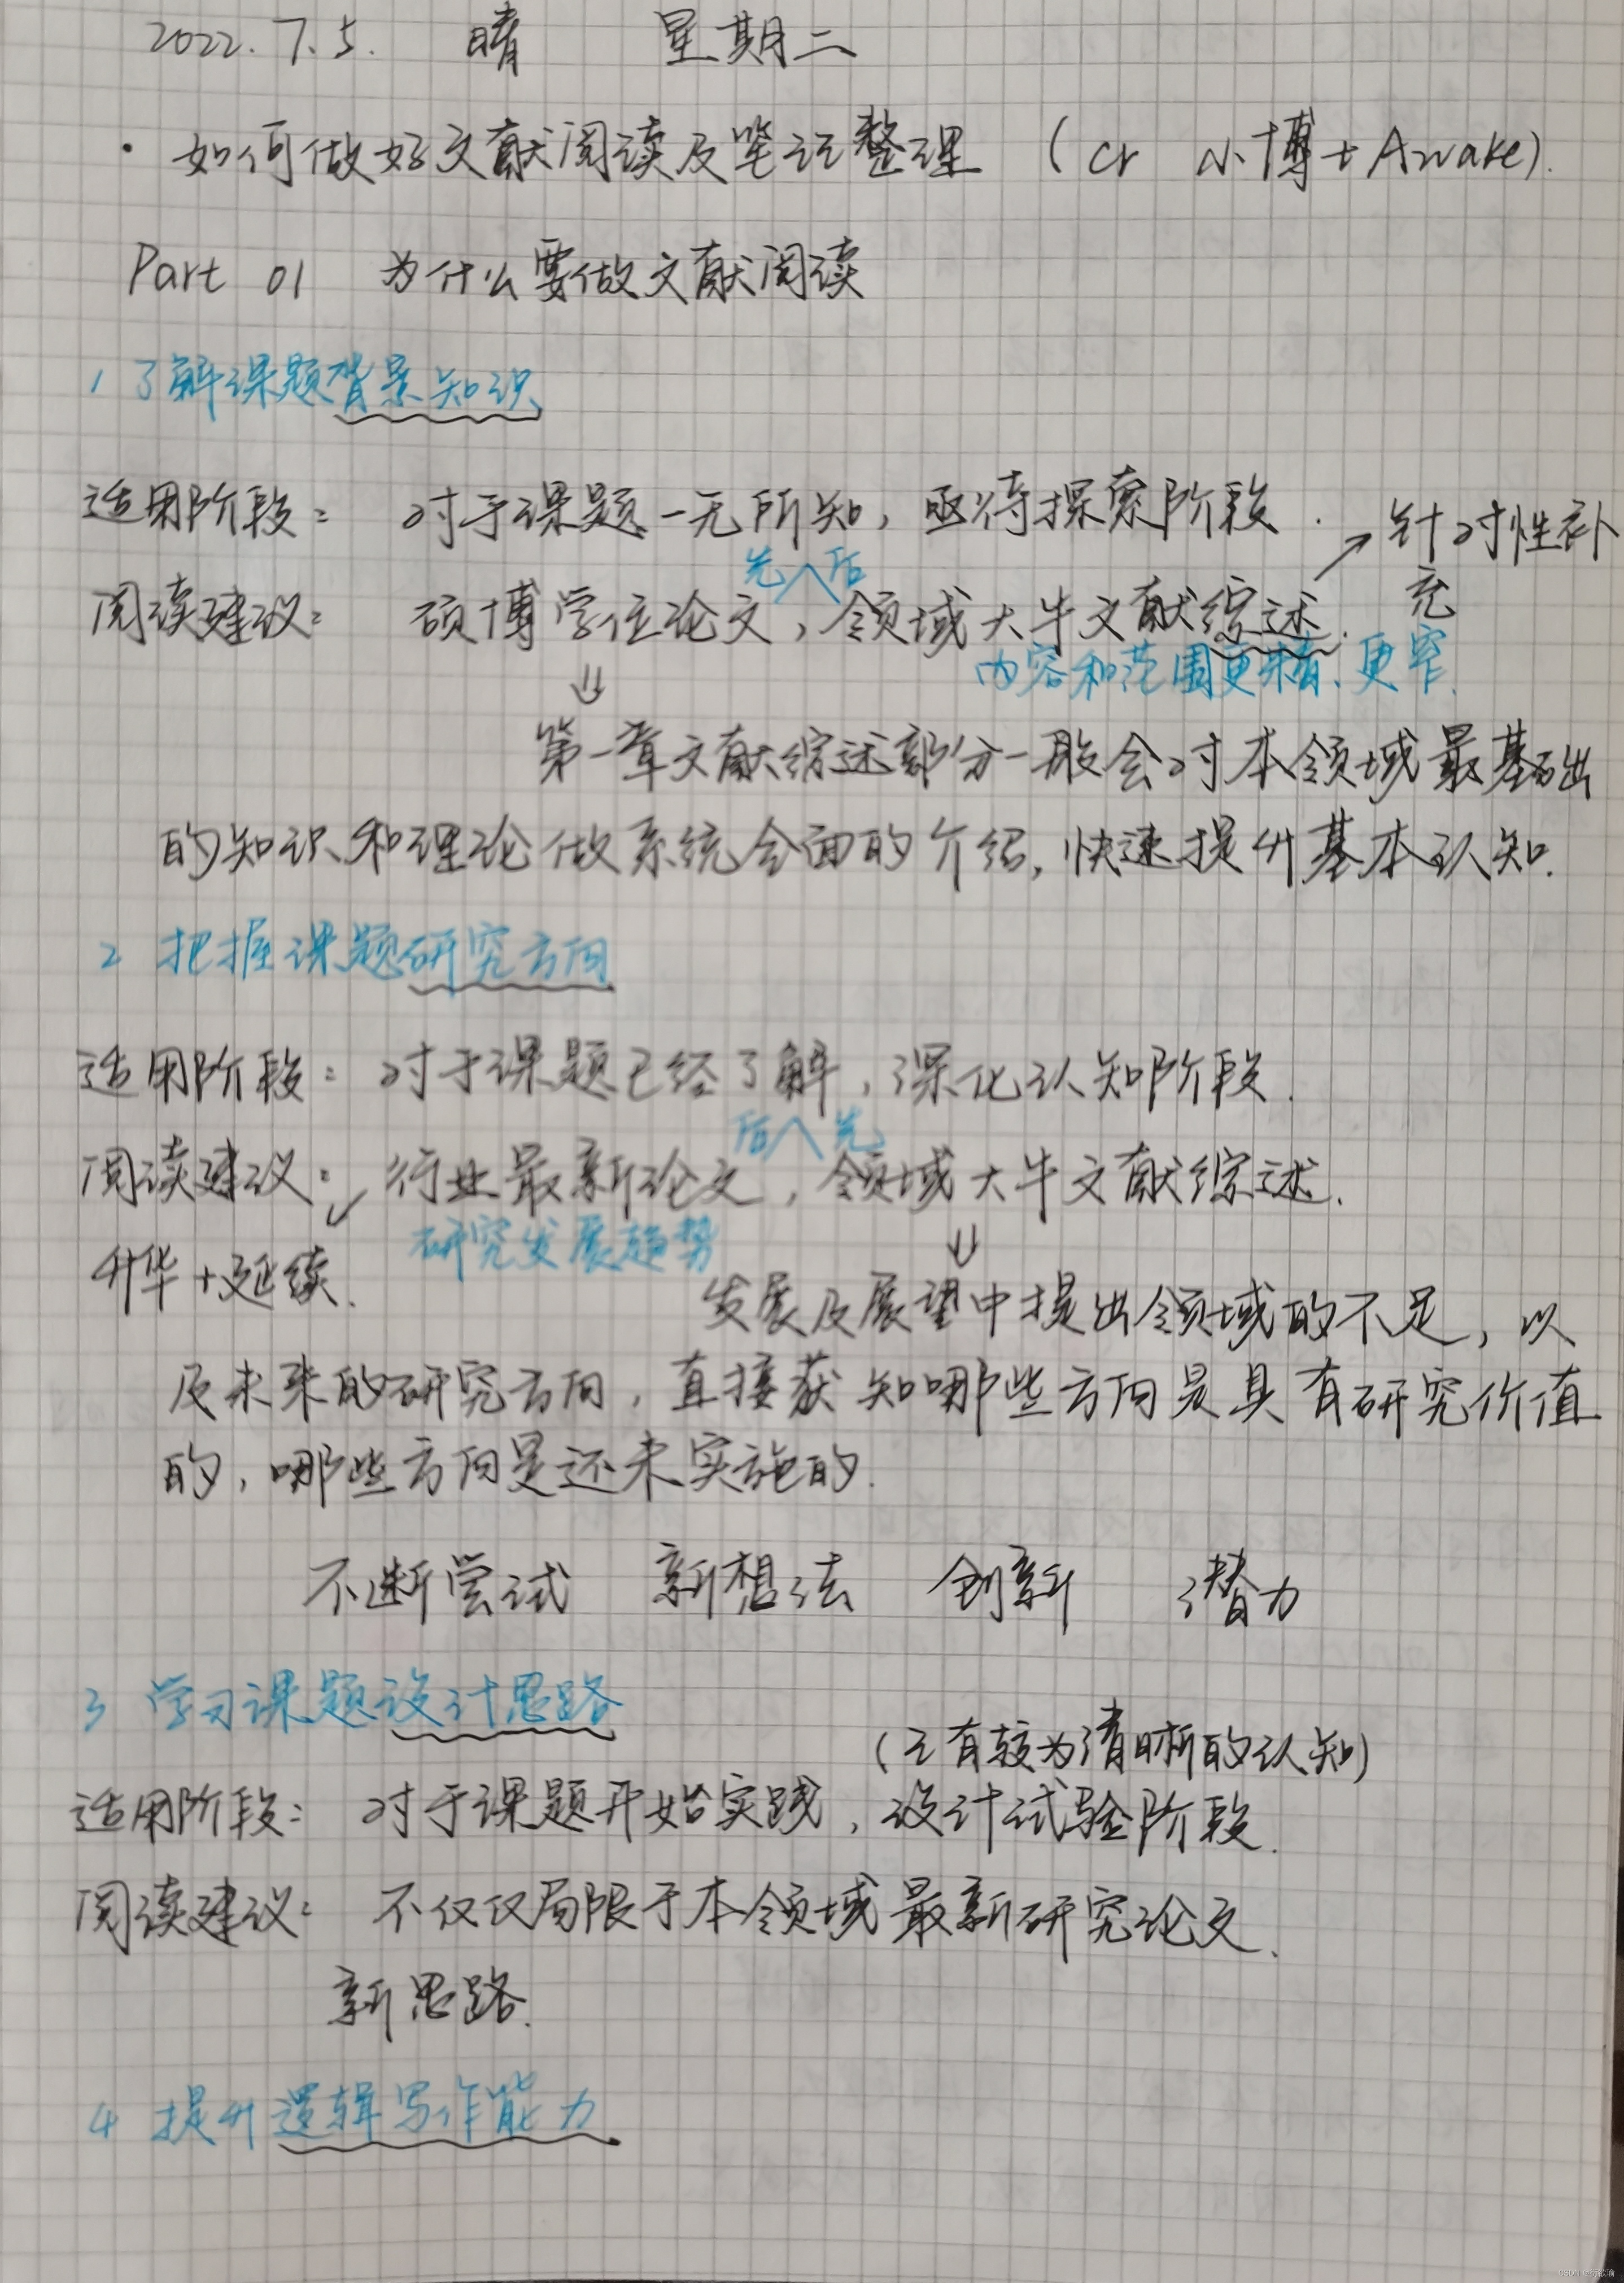 2022.7.5. 晴 星期二
· 如何做好文献阅读及笔记整理 (cr 小博+Awake).
Part 01 为什么要做文献阅读
1 了解课题背景知识
适用阶段: 对于课题一无所知,亟待探索阶段.
针对性补
充
先 后
阅读建议: 硕博学位论文,领域大牛文献综述.
内容和范围更精、更窄.
第一章文献综述部分一般会对本领域最基础
的知识和理论做系统全面的介绍,快速提升基本认知.
2 把握课题研究方向
适用阶段: 对于课题已经了解,深化认知阶段.
后 先
阅读建议: 行业最新论文,领域大牛文献综述.
研究发展趋势
升华+延续.
发展及展望中提出领域的不足,以
及未来的研究方向,直接获知哪些方向是具有研究价值
的,哪些方向是还未实施的.
不断尝试 新想法 创新 潜力
3 学习课题设计思路
(已有较为清晰的认知)
适用阶段: 对于课题开始实践,设计试验阶段.
阅读建议: 不仅仅局限于本领域最新研究论文.
新思路.
4 提升逻辑写作能力